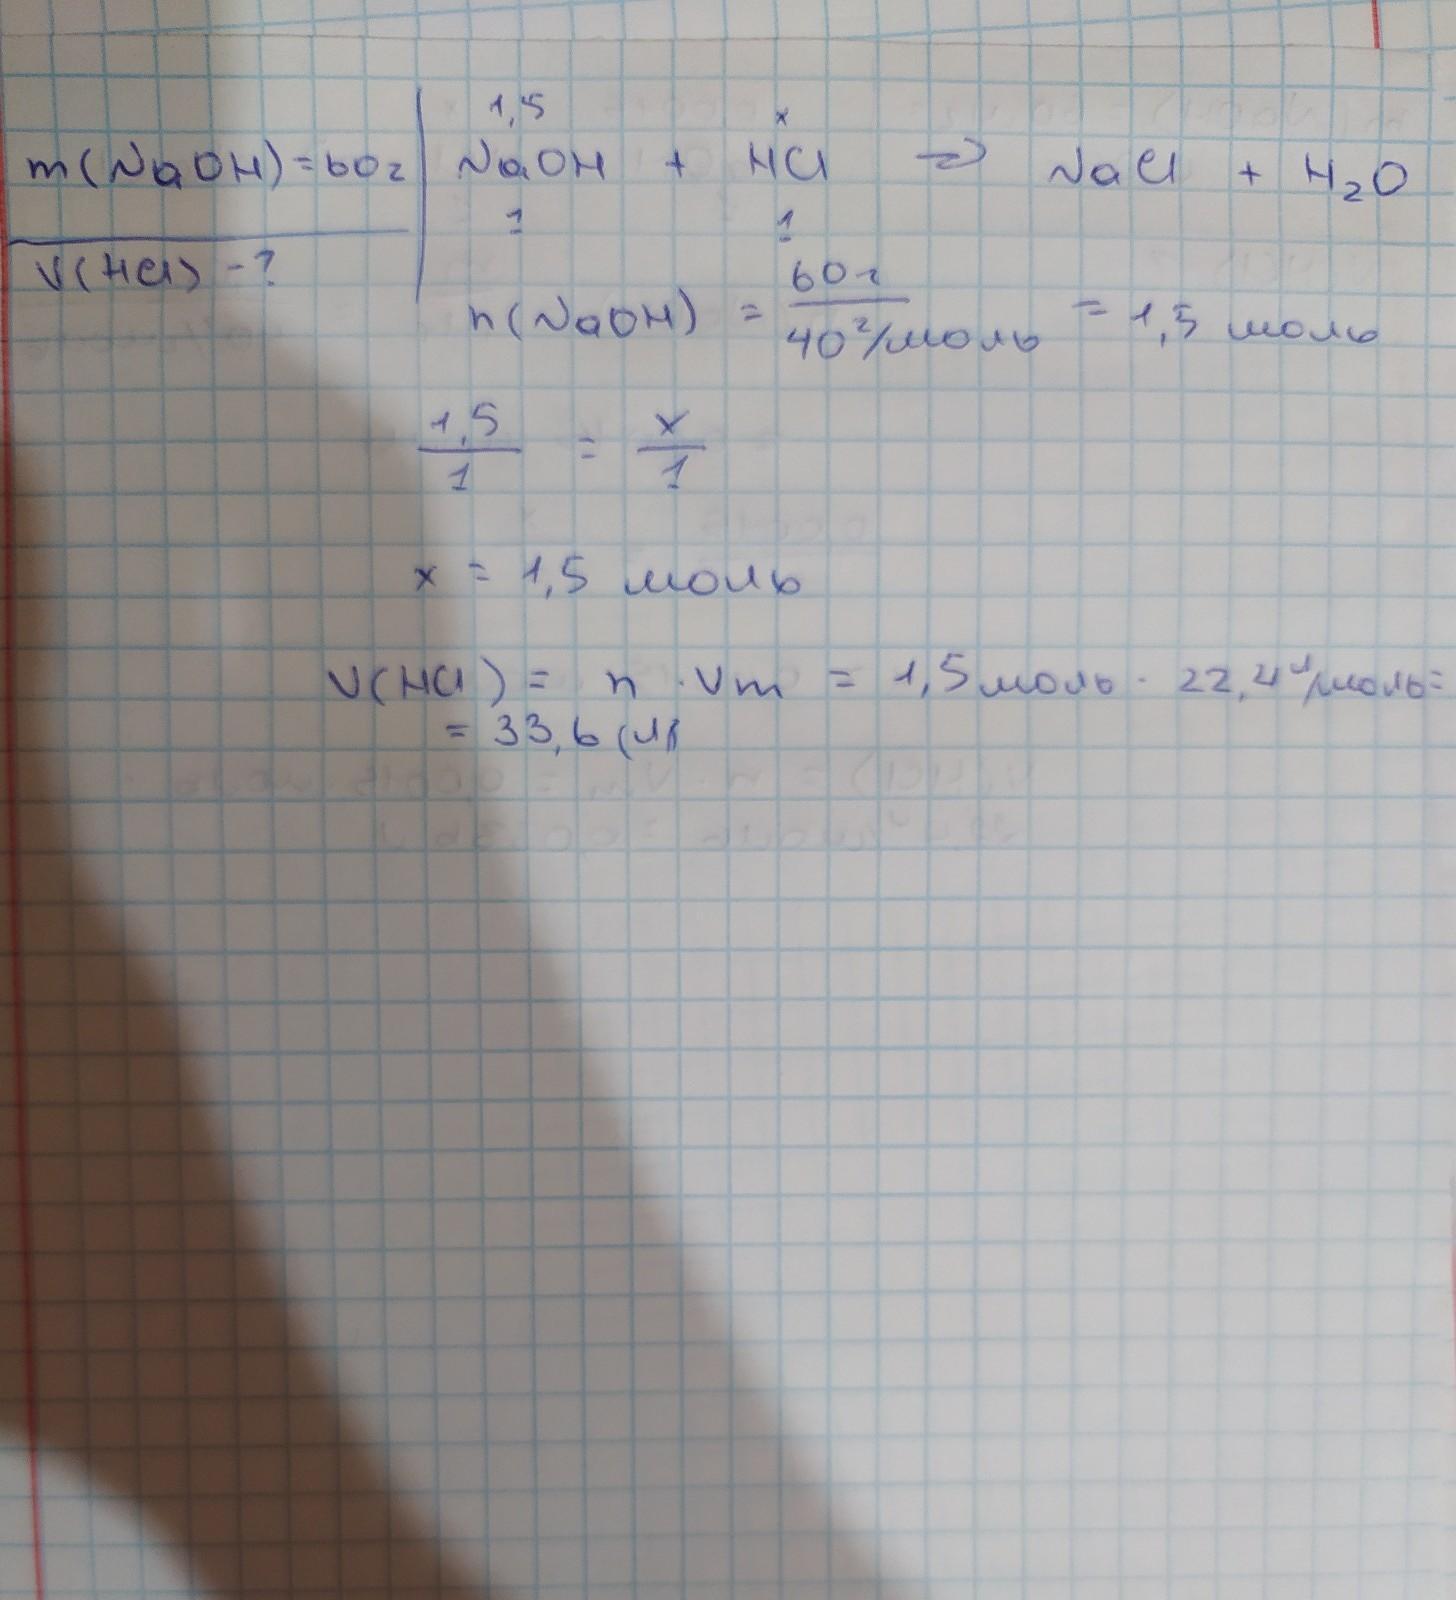 m(NaOH)=60г
V(HCl) -?
1,5 x
NaOH + HCl => NaCl + H₂O
1 1
n(NaOH) = 60г / 40г/моль = 1,5 моль
1,5 / 1 = x / 1
x = 1,5 моль
V(HCl) = n · Vm = 1,5 моль · 22,4 л/моль=
= 33,6 (л)